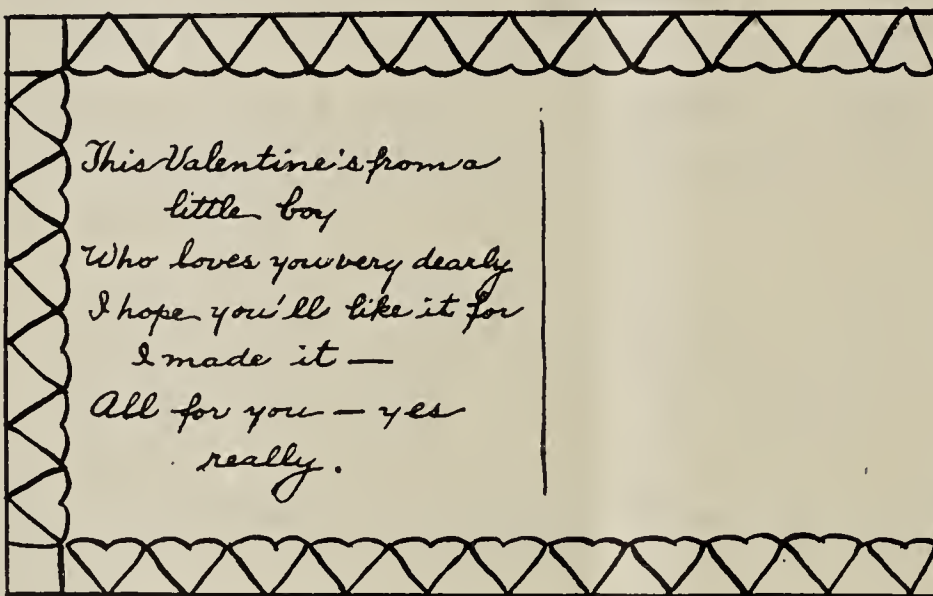 This Valentine's from a
little boy
Who loves you very dearly
I hope you'll like it for
I made it —
All for you — yes
really.